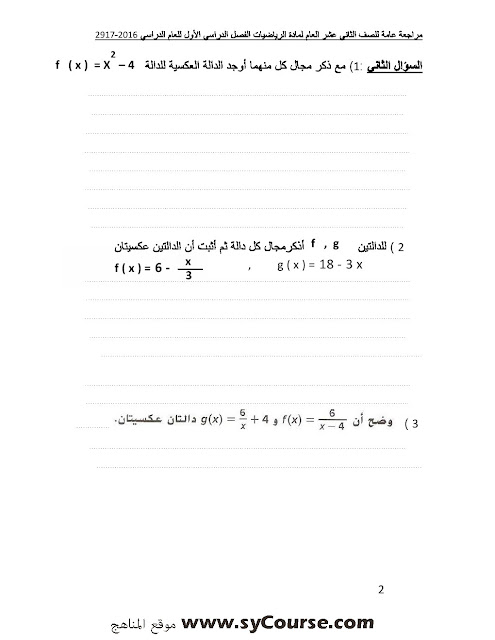 مراجعة عامة للصف الثاني عشر العام لمادة الرياضيات الفصل الدراسي الأول للعام الدراسي 2016-2917
السؤال الثاني :1) مع ذكر مجال كل منهما أوجد الدالة العكسية للدالة f ( x ) = X² – 4
2 ) للدالتين f , g أذكرمجال كل دالة ثم أثبت أن الدالتين عكسيتان
f ( x ) = 6 - x/3 , g ( x ) = 18 - 3 x
3 ) وضح أن f(x) = 6/(x – 4) و g(x) = 6/x + 4 دالتان عكسيتان.
2
موقع المناهج www.syCourse.com